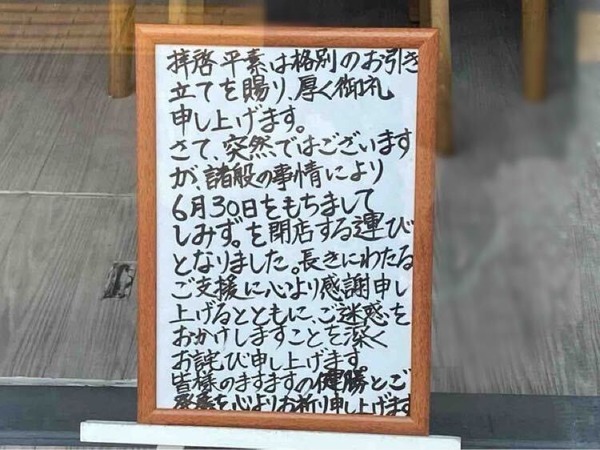 拝啓 平素は格別のお引き
立てを賜り、厚く御礼
申し上げます。
さて、突然ではございます
が、諸般の事情により
6月30日をもちまして
しみず。を閉店する運び
となりました。長きにわたる
ご支援に心より感謝申し
上げるとともに、ご迷惑を
おかけしますことを深く
お詫び申し上げます。
皆様のますますの健勝とご
を心よりお祈り申し上げます